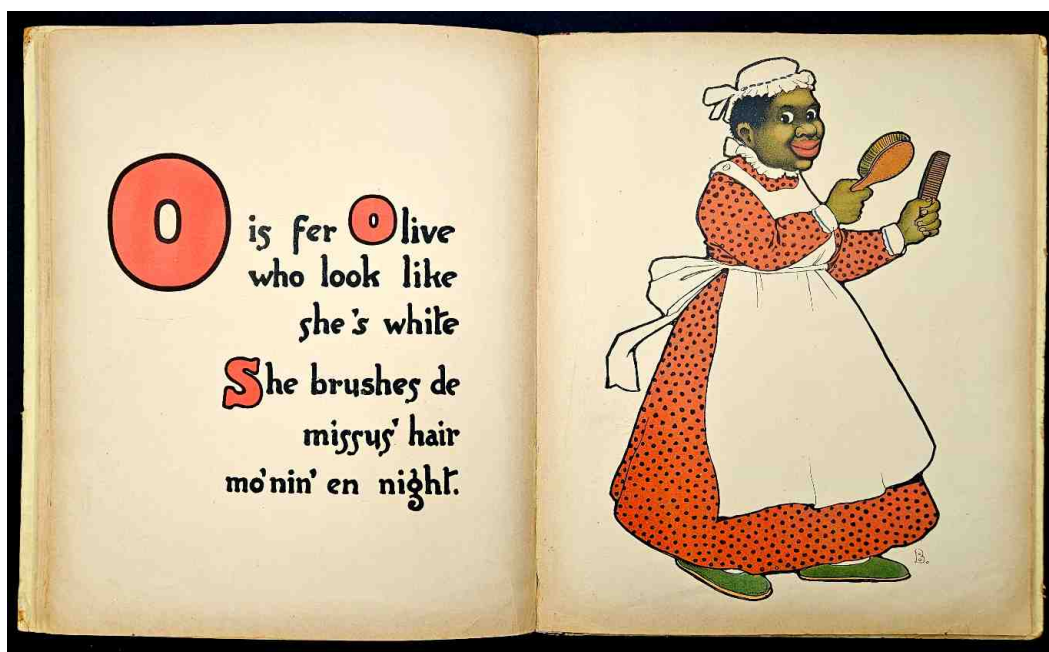 O is fer Olive
who look like
she's white
She brushes de
missus' hair
mo'nin' en night.
B.